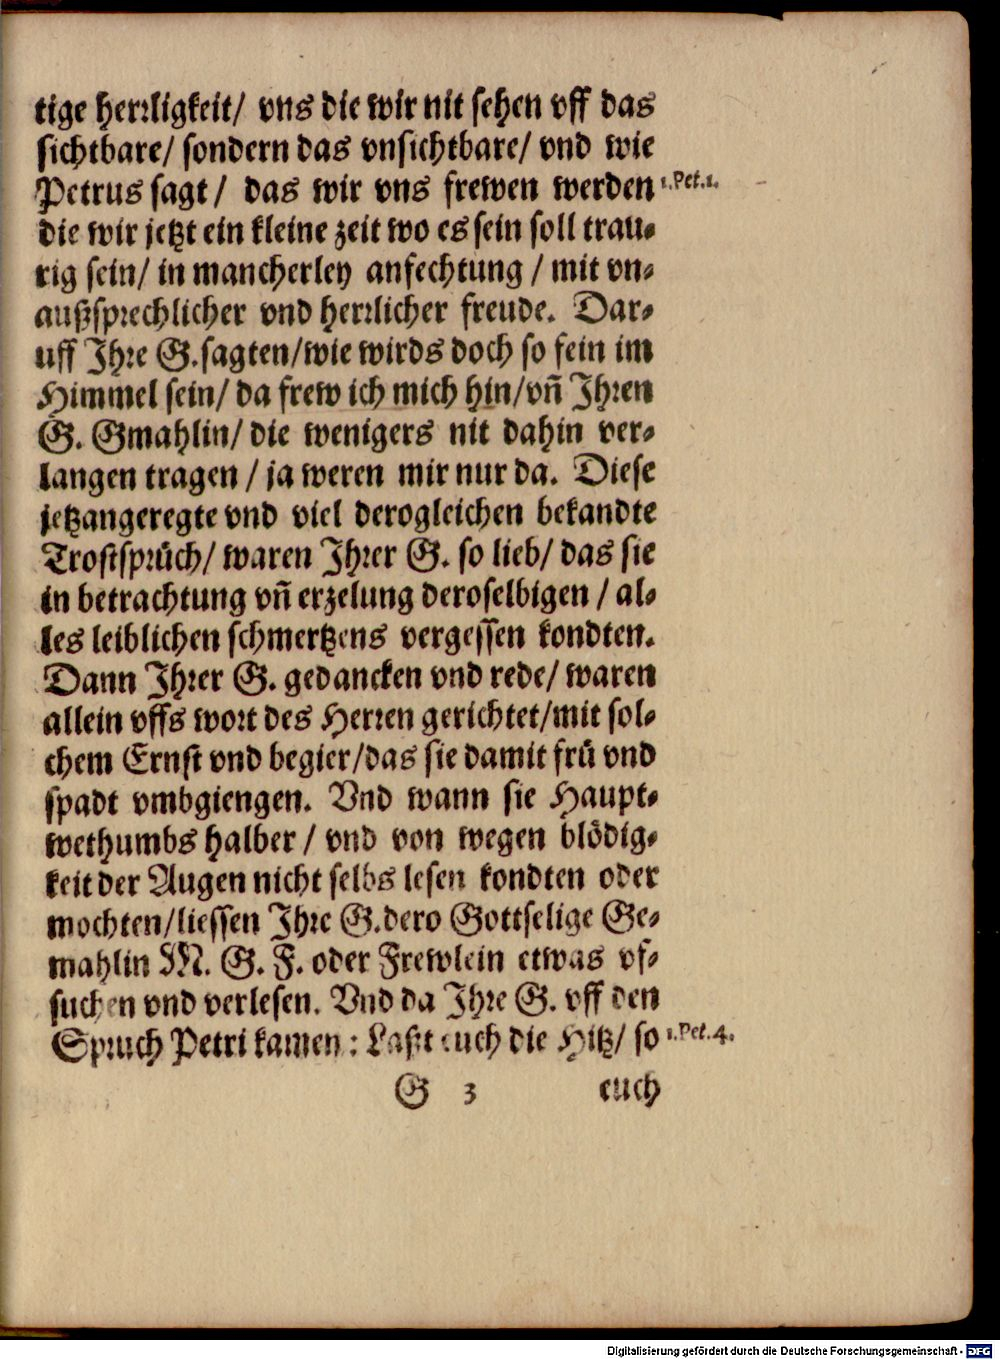 tige herrligkeit/ vns die wir nit sehen vff das
sichtbare/ sondern das vnsichtbare/ vnd wie
Petrus sagt/ das wir vns frewen werden 1.Pet.1.
die wir jetzt ein kleine zeit wo es sein soll trau-
rig sein/ in mancherley anfechtung / mit vn-
außsprechlicher vnd herrlicher freude. Dar-
uff Ihre G.sagten/wie wirds doch so fein im
Himmel sein/ da frew ich mich hin/vñ Ihren
G. Gmahlin/ die wenigers nit dahin ver-
langen tragen / ja weren mir nur da. Diese
jetzangeregte vnd viel derogleichen bekandte
Trostsprüch/ waren Ihrer G. so lieb/ das sie
in betrachtung vñ erzelung deroselbigen / al-
les leiblichen schmertzens vergessen kondten.
Dann Ihrer G. gedancken vnd rede/ waren
allein vffs wort des Herren gerichtet/mit sol-
chem Ernst vnd begier/das sie damit frü vnd
spadt vmbgiengen. Vnd wann sie Haupt-
wethumbs halber / vnd von wegen blödig-
keit der Augen nicht selbs lesen kondten oder
mochten/liessen Ihre G.dero Gottselige Ge-
mahlin M. G. F. oder Frewlein etwas vf-
suchen vnd verlesen. Vnd da Ihre G. vff den
Spruch Petri kamen : Laßt euch die Hitz/ so 1.Pet.4.
G 3 euch
Digitalisierung gefördert durch die Deutsche Forschungsgemeinschaft - DFG